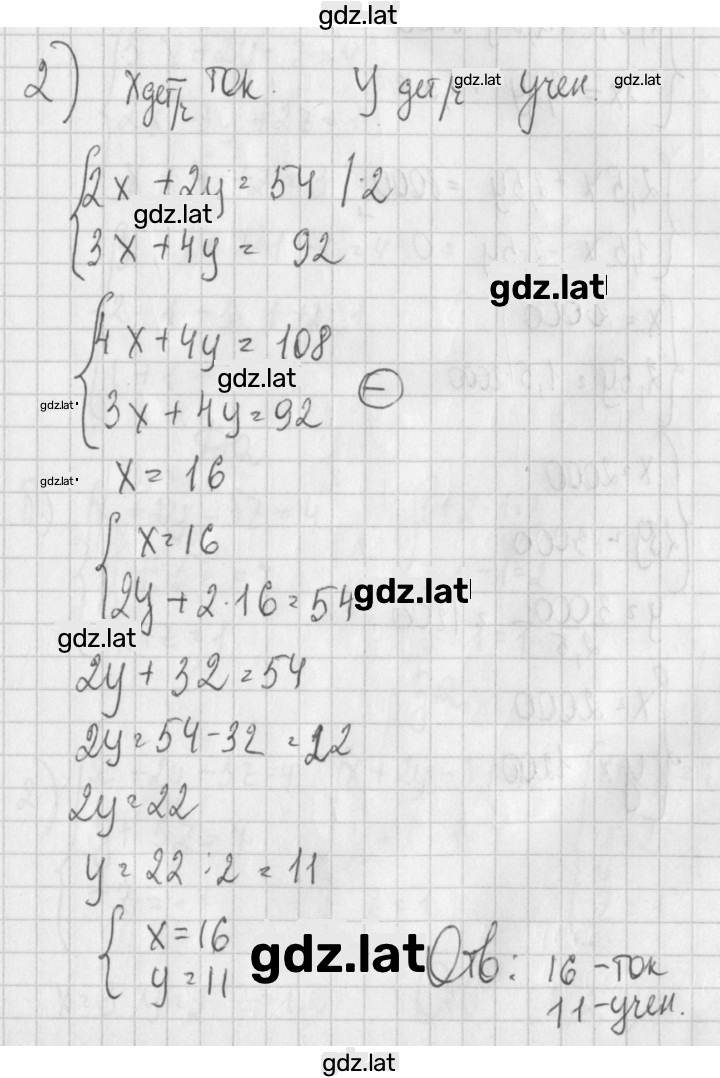 gdz.lat
2) x дет/ч ток. y дет/ч учен.
gdz.lat gdz.lat
2x + 2y = 54 | · 2
gdz.lat
3x + 4y = 92
gdz.lat
4x + 4y = 108
gdz.lat
3x + 4y = 92 (−)
gdz.lat
x = 16
gdz.lat
x = 16
2y + 2 · 16 = 54
gdz.lat
gdz.lat
2y + 32 = 54
2y = 54 - 32 = 22
2y = 22
y = 22 : 2 = 11
x = 16
y = 11
gdz.lat
Отв: 16 - ток
11 - учен.
gdz.lat